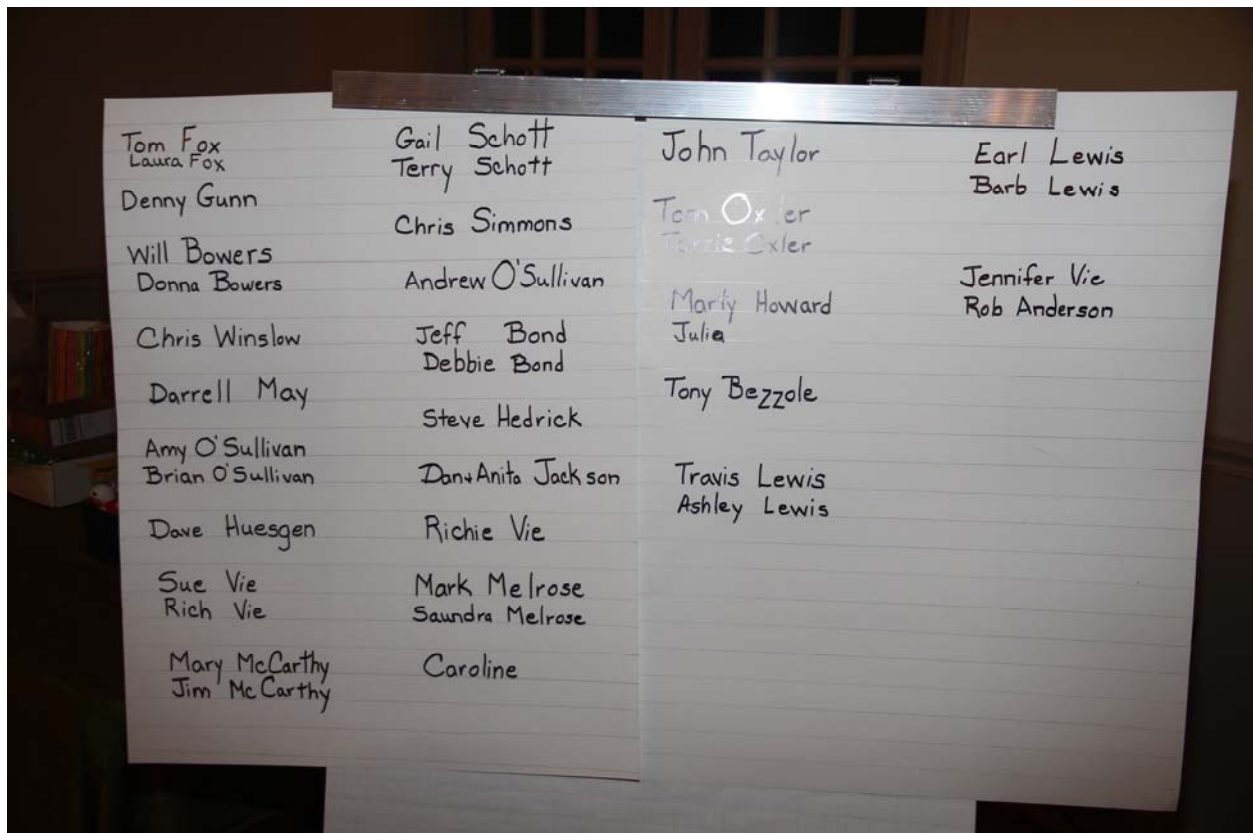 Tom Fox
Laura Fox
Denny Gunn
Will Bowers
Donna Bowers
Chris Winslow
Darrell May
Amy O'Sullivan
Brian O'Sullivan
Dave Huesgen
Sue Vie
Rich Vie
Mary McCarthy
Jim McCarthy
Gail Schott
Terry Schott
Chris Simmons
Andrew O'Sullivan
Jeff Bond
Debbie Bond
Steve Hedrick
Dan+Anita Jackson
Richie Vie
Mark Melrose
Saundra Melrose
Caroline
John Taylor
Tom Oxler
Oxler
Marty Howard
Julia
Tony Bezzole
Travis Lewis
Ashley Lewis
Earl Lewis
Barb Lewis
Jennifer Vie
Rob Anderson